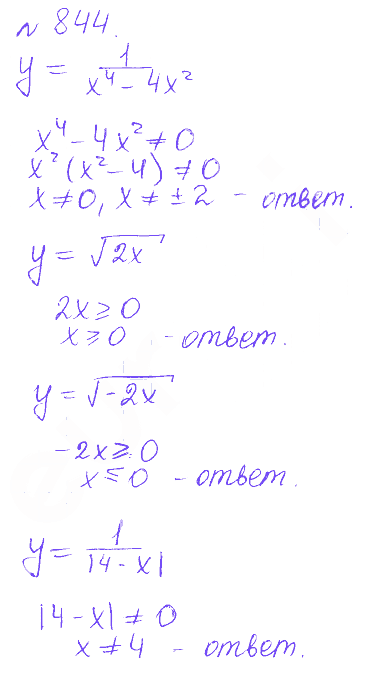 № 844.
y = 1/(x⁴ - 4x²)
x⁴ - 4x² ≠ 0
x²(x² - 4) ≠ 0
x ≠ 0, x ≠ ± 2 - ответ.
y = √2x
2x ≥ 0
x ≥ 0 - ответ.
y = √-2x
-2x ≥ 0
x ≤ 0 - ответ.
y = 1/|4 - x|
|4 - x| ≠ 0
x ≠ 4 - ответ.